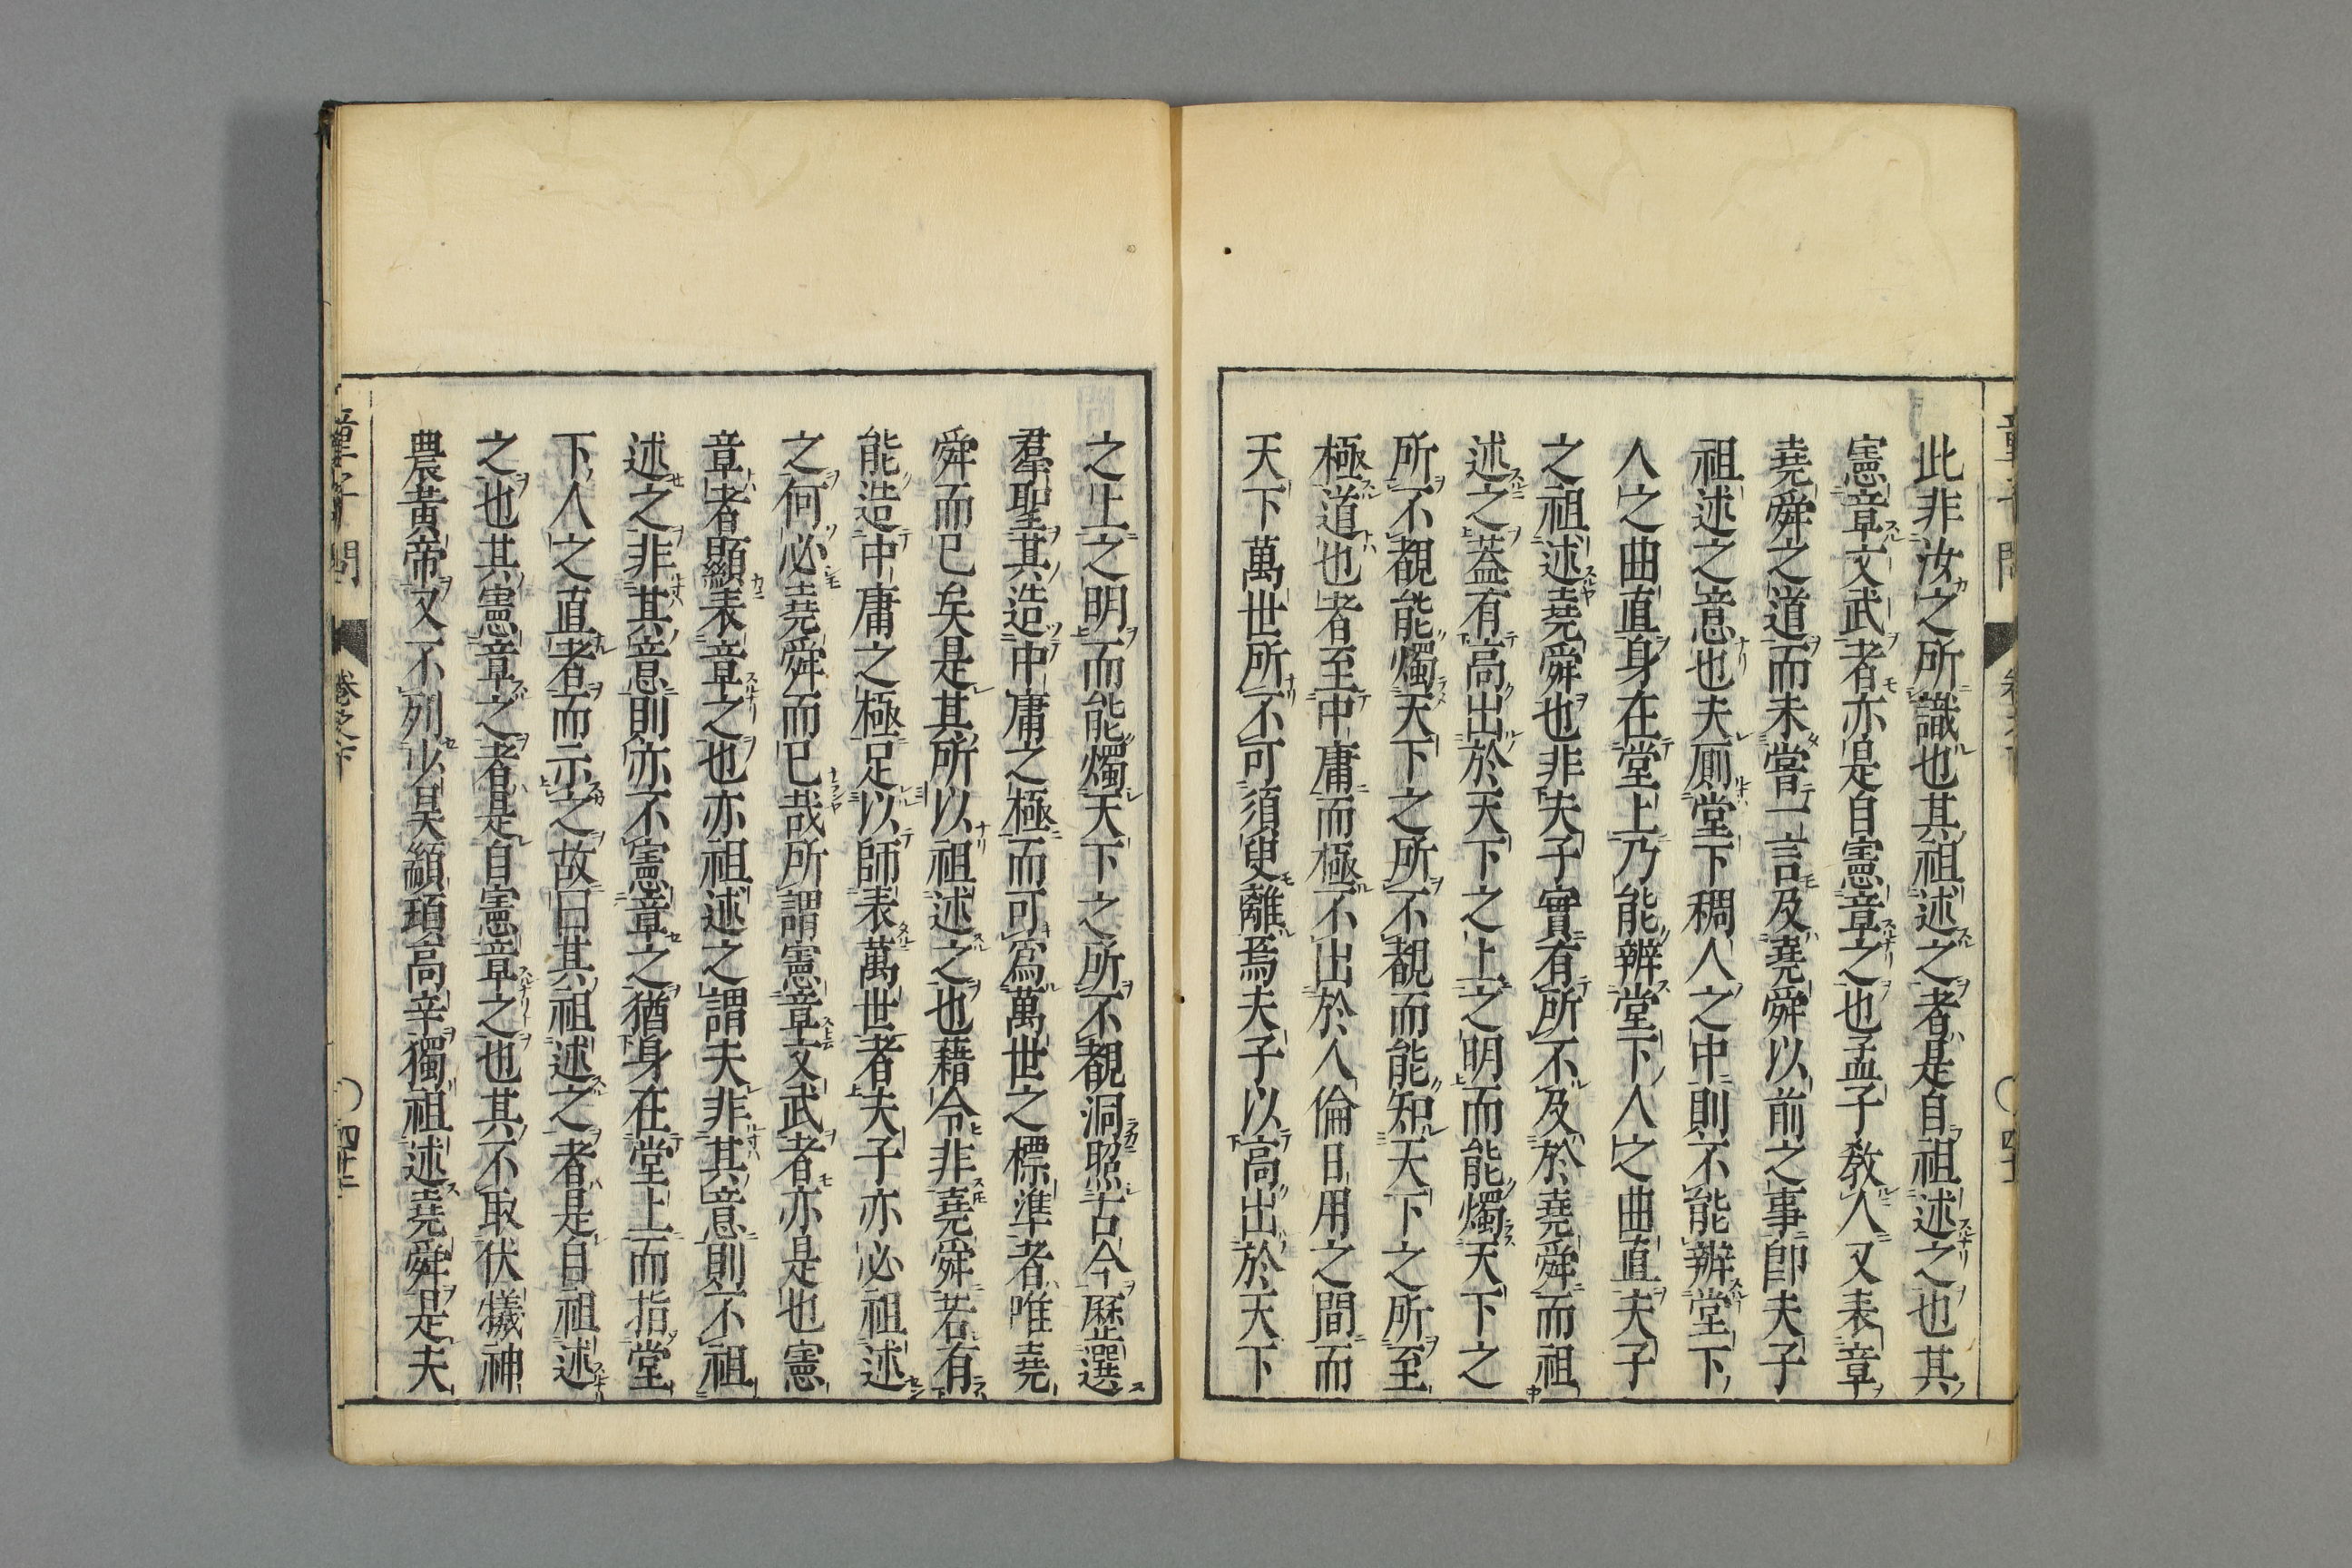 此非汝之所識也其祖述之者是自祖述之也其
憲章文武者亦是自憲章之也孟子敎人又表章
堯舜之道而未嘗一言及堯舜以前之事卽夫子
祖述之意也夫厠堂下稠人之中則不能辨堂下
人之曲直身在堂上乃能辨堂下人之曲直夫子
之祖述堯舜也非夫子實有所不及於堯舜而祖
述之蓋有高出於天下之上之明而能燭天下之
所不覩能燭天下之所不覩而能知天下之所至
極道也者至中庸而極不出於人倫日用之間而
天下萬世所不可須臾離焉夫子以高出於天下
之上之明而能燭天下之所不覩洞照古今歷選
羣聖其造中庸之極而可爲萬世之標準者唯堯
舜而已矣是其所以祖述之也藉令非堯舜若有
能造中庸之極足以師表萬世者夫子亦必祖述
之何必堯舜而已哉所謂憲章文武者亦是也憲
章者顯表章之也亦祖述之謂夫非其意則不祖
述之非其意則亦不憲章之猶身在堂上而指堂
下人之直者而示之故曰其祖述之者是自祖述
之也其憲章之者是自憲章之也其不取伏犧神
農黃帝又不列少昊顓頊高辛獨祖述堯舜是夫
童子問 卷之下 四十二